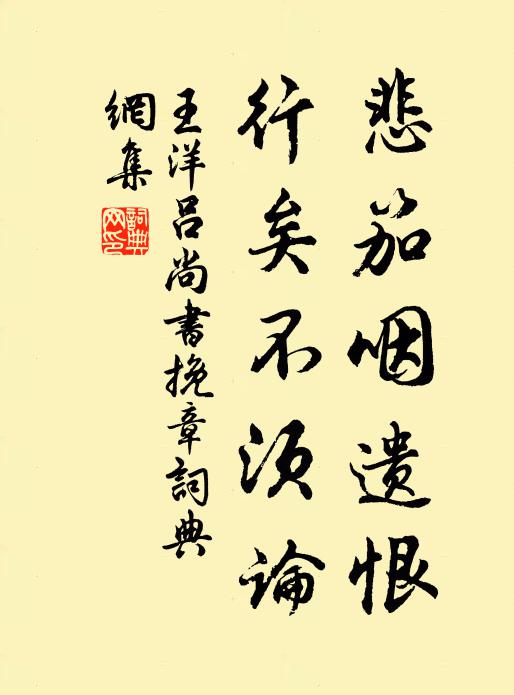 悲笳咽遗恨
行矣不须論
王洋吕尚書挽章詞典
網集
詞典
网印